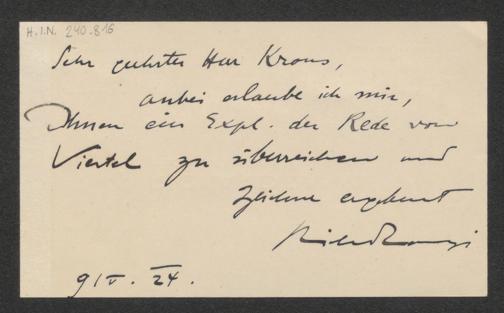 H.I.N. 240.816
Sehr geehrter Herr Kraus,
anbei erlaube ich mir,
Ihnen ein Expl. der Rede von
Viertel zu überreichen und
zeichne ergebenst
9/V. 24.